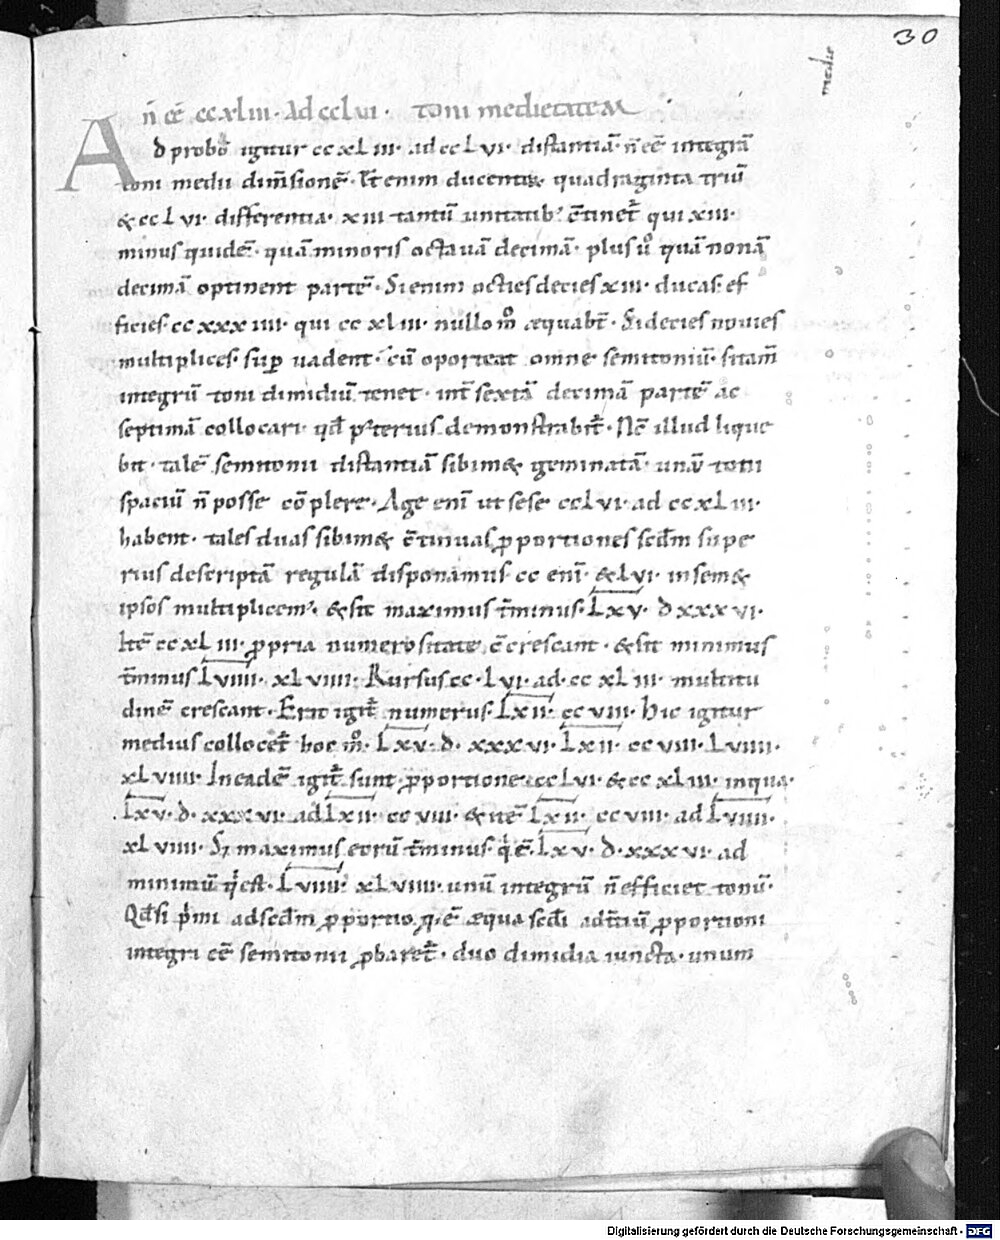 30
medie
n̄ cē ccxlııı· Ad cclvı· toni medietatem
Ad probō igitur ccxLııı· ad ccLvı· distantiā· n̄ eē integrā
toni medii dim̄sionē· Et enim ducentor̄ quadraginta triū
& ccLvı· differentia· xııı tantū unitatib; c̄tinet̄ qui xııı·
minus quidē· quā minoris octauā decimā· plus ů quā nonā
decimā optinent partē· Si enim octies decies xııı· ducas· ef
ficies ccxxxıııı· qui ccxLııı· nullo m̊ æquabt̄· Si decies nouies
multiplices· sup uadent· cū oporteat omne semitoniū· si tam̄
integrū toni dimidiū tenet· int̄ sextā decimā partē ac
septimā collocari· qđ p̱terius demonstrabit̄· Nc̄ illud lique
bit· talē semitonii distantiā sibim& geminatā· unū toni
spaciū n̄ posse cōplere· Age enī ut sese ccLvı· ad ccxLııı·
habent· tales duas sibim& c̄tinuas ꝓportiones scđm supe
rius descriptā regulā disponamus cc enī· &Lvı· in sem&
ipsos multiplicem᷒· & sit maximus t̄minus· Lxv· dxxxvı·
Itē ccxLııı· ꝓpria numerositate c̄crescant· & sit minimus
t̄minus Lvıııı· xLvıııı· Rursus cc·Lvı· ad· ccxLııı· multitu
dinē crescant· Erit igit̄ numerus· Lxıı· ccvııı· Hic igitur
medius collocet̄ hoc m̊· Lxv· d· xxxvı· Lxıı· ccvııı· Lvıııı·
xLvıııı· In eadē igit̄ sunt ꝓportione ccLvı· & ccxLııı· in qua·
Lxv· d· xxxvı· ad Lxıı· ccvııı· & itē Lxıı· ccvııı· ad Lvıııı·
xLvıııı· Sȝ maximus eorū t̄minus· q̇ ē· Lxv· d·xxxvı· ad
minimū q̇ est· Lvıııı· xLvıııı· unū integrū n̄ efficiet tonū·
Qđ si p̄mi ad scđm ꝓportio q·ē æqua scđi ad t̄ciū ꝓportioni
integri cē semitonii ꝓbaret̄· duo dimidia iuncta· unum
Digitalisierung gefördert durch die Deutsche Forschungsgemeinschaft - DFG